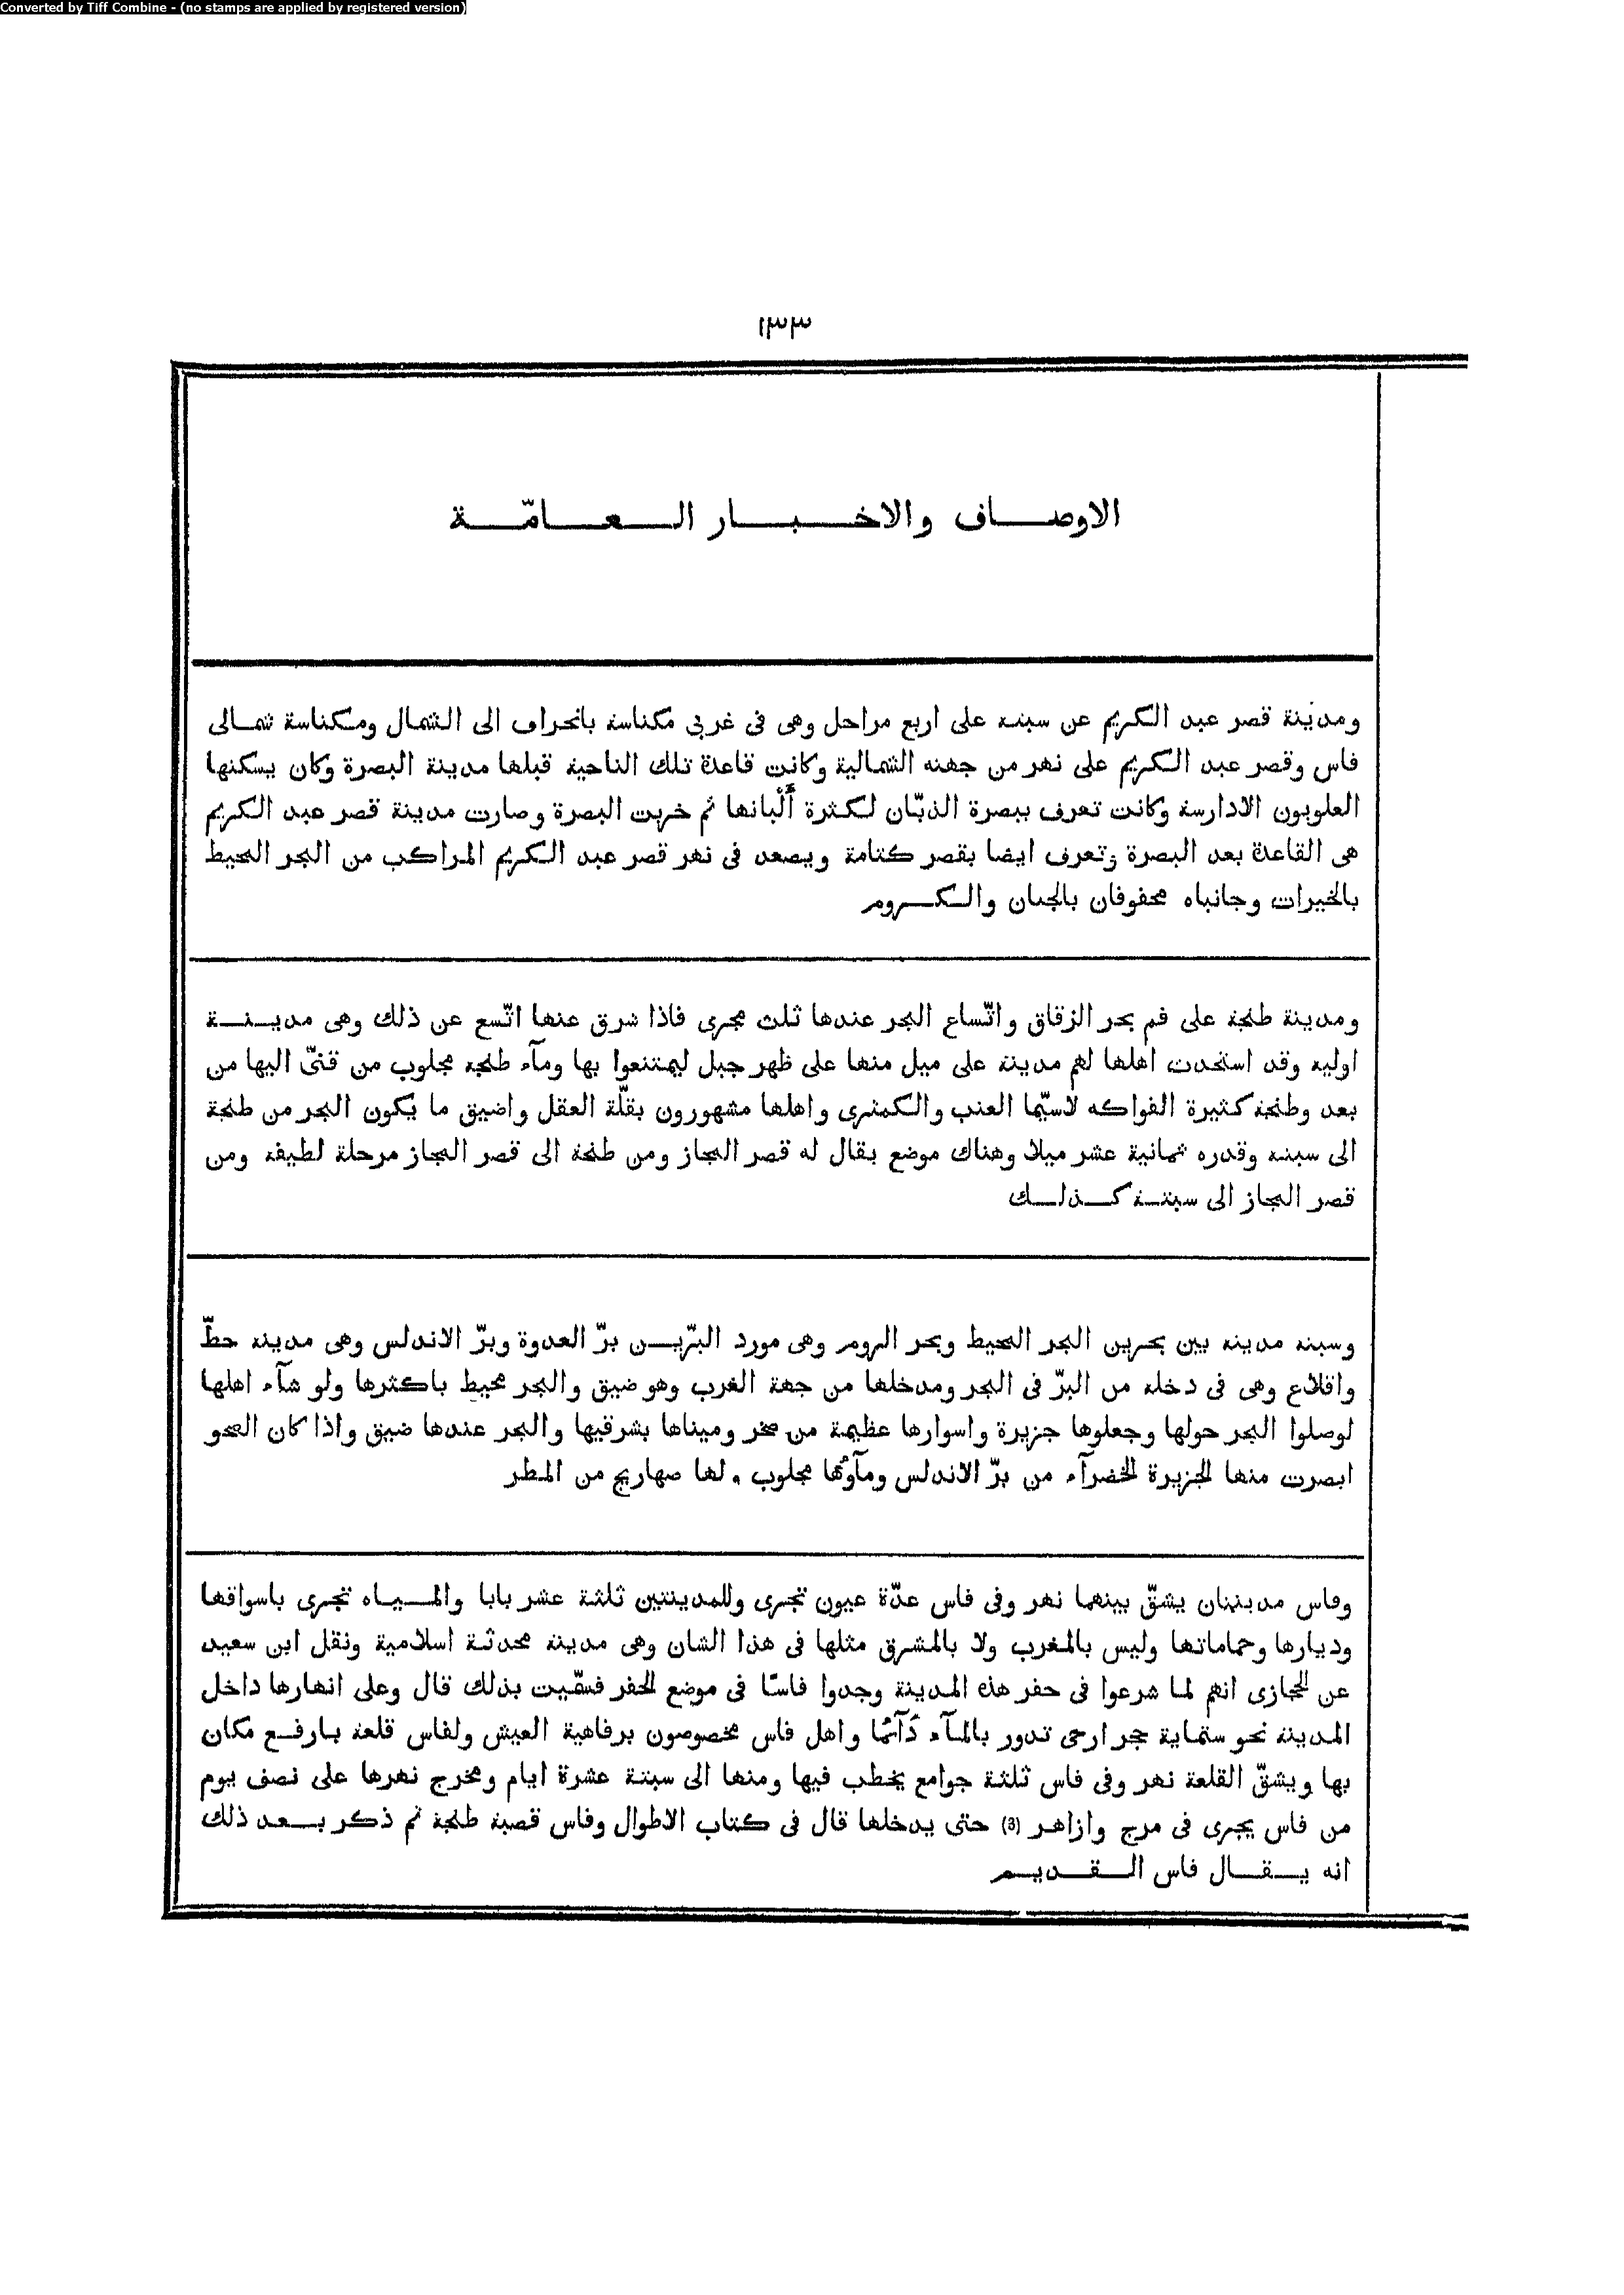 Converted by Tiff Combine - (no stamps are applied by registered version)
١٣٣
الاوصاف والاخبار العامّة
ومدينة قصر عبد الكريم عن سبته على اربع مراحل وهى فى غربى مكناسة بانحراف الى الشمال ومكناسة شمالى
فاس وقصر عبد الكريم على نهر من جهته الشمالية وكانت قاعدة تلك الناحية قبلها مدينة البصرة وكان يسكنها
العلويون الادارسة وكانت تعرف ببصرة الذبّان لكثرة أَلْبانها ثم خربت البصرة وصارت مدينة قصر عبد الكريم
هى القاعدة بعد البصرة وتعرف ايضا بقصر كتامة ويصعد فى نهر قصر عبد الكريم المراكب من البحر المحيط
بالخيرات وجانباه محفوفان بالجنان والكروم
ومدينة طنجة على فم بحر الزقاق واتّساع البحر عندها ثلث مجرى فاذا شرق عنها اتّسع عن ذلك وهى مدينة
اوليه وقد استحدث اهلها لهم مدينة على ميل منها على ظهر جبل ليمتنعوا بها ومآء طنجه مجلوب من قنىّ اليها من
بعد وطنجة كثيرة الفواكه لاسيّما العنب والكمثرى واهلها مشهورون بقلّة العقل واضيق ما يكون البحر من طنجة
الى سبته وقدره ثمانية عشر ميلا وهناك موضع يقال له قصر المجاز ومن طنجة الى قصر المجاز مرحلة لطيفه ومن
قصر المجاز الى سبتة كذلك
وسبته مدينه بين بحرين البحر المحيط وبحر الروم وهى مورد البرّين برّ العدوة وبرّ الاندلس وهى مدينه حطّ
واقلاع وهى فى دخله من البرّ فى البحر ومدخلها من جهة الغرب وهو ضيق والبحر محيط باكثرها ولو شآء اهلها
لوصلوا البحر حولها وجعلوها جزيرة واسوارها عظيمة من صخر وميناها بشرقيها والبحر عندها ضيق واذا كان الصحو
ابصرت منها الجزيرة الخضرآء من برّ الاندلس ومآوُها مجلوب ولها صهاريج من المطر
وفاس مدينتان يشقّ بينهما نهر وفى فاس عدّة عيون تجرى وللمدينتين ثلثة عشر بابا والمياه تجرى باسواقها
وديارها وحماماتها وليس بالمغرب ولا بالمشرق مثلها فى هذا الشان وهى مدينة محدثة اسلامية ونقل ابن سعيد
عن الحجازى انهم لما شرعوا فى حفر هذه المدينة وجدوا فاسًا فى موضع الحفر فسمّيت بذلك قال وعلى انهارها داخل
المدينه نحو ستماية حجر ارحى تدور بالمآء دَآئمًا واهل فاس مخصوصون برفاهية العيش ولفاس قلعة بارفع مكان
بها ويشقّ القلعة نهر وفى فاس ثلثة جوامع يخطب فيها ومنها الى سبتة عشرة ايام ومخرج نهرها على نصف يوم
من فاس يجرى فى مرج وازاهر (3) حتى يدخلها قال فى كتاب الاطوال وفاس قصبة طنجة ثم ذكر بعد ذلك
انه يقال فاس القديم